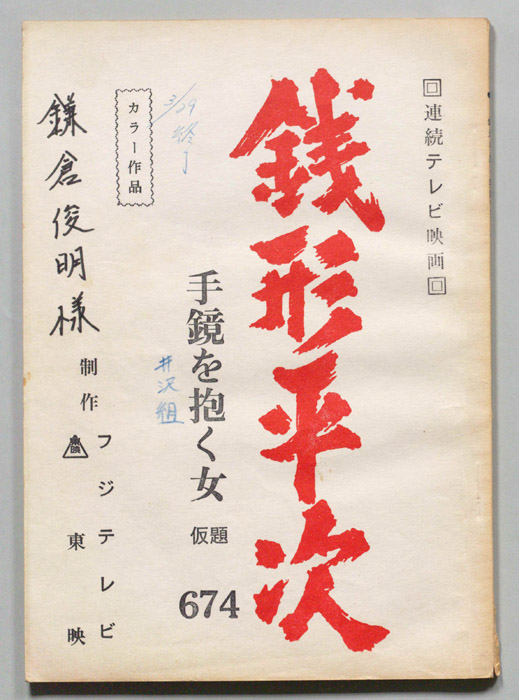 回連続テレビ映画回
銭形平次
手鏡を抱く女
仮題
674
井沢組
3/29 終了
カラー作品
鎌倉俊明様
制作
フジテレビ
東映